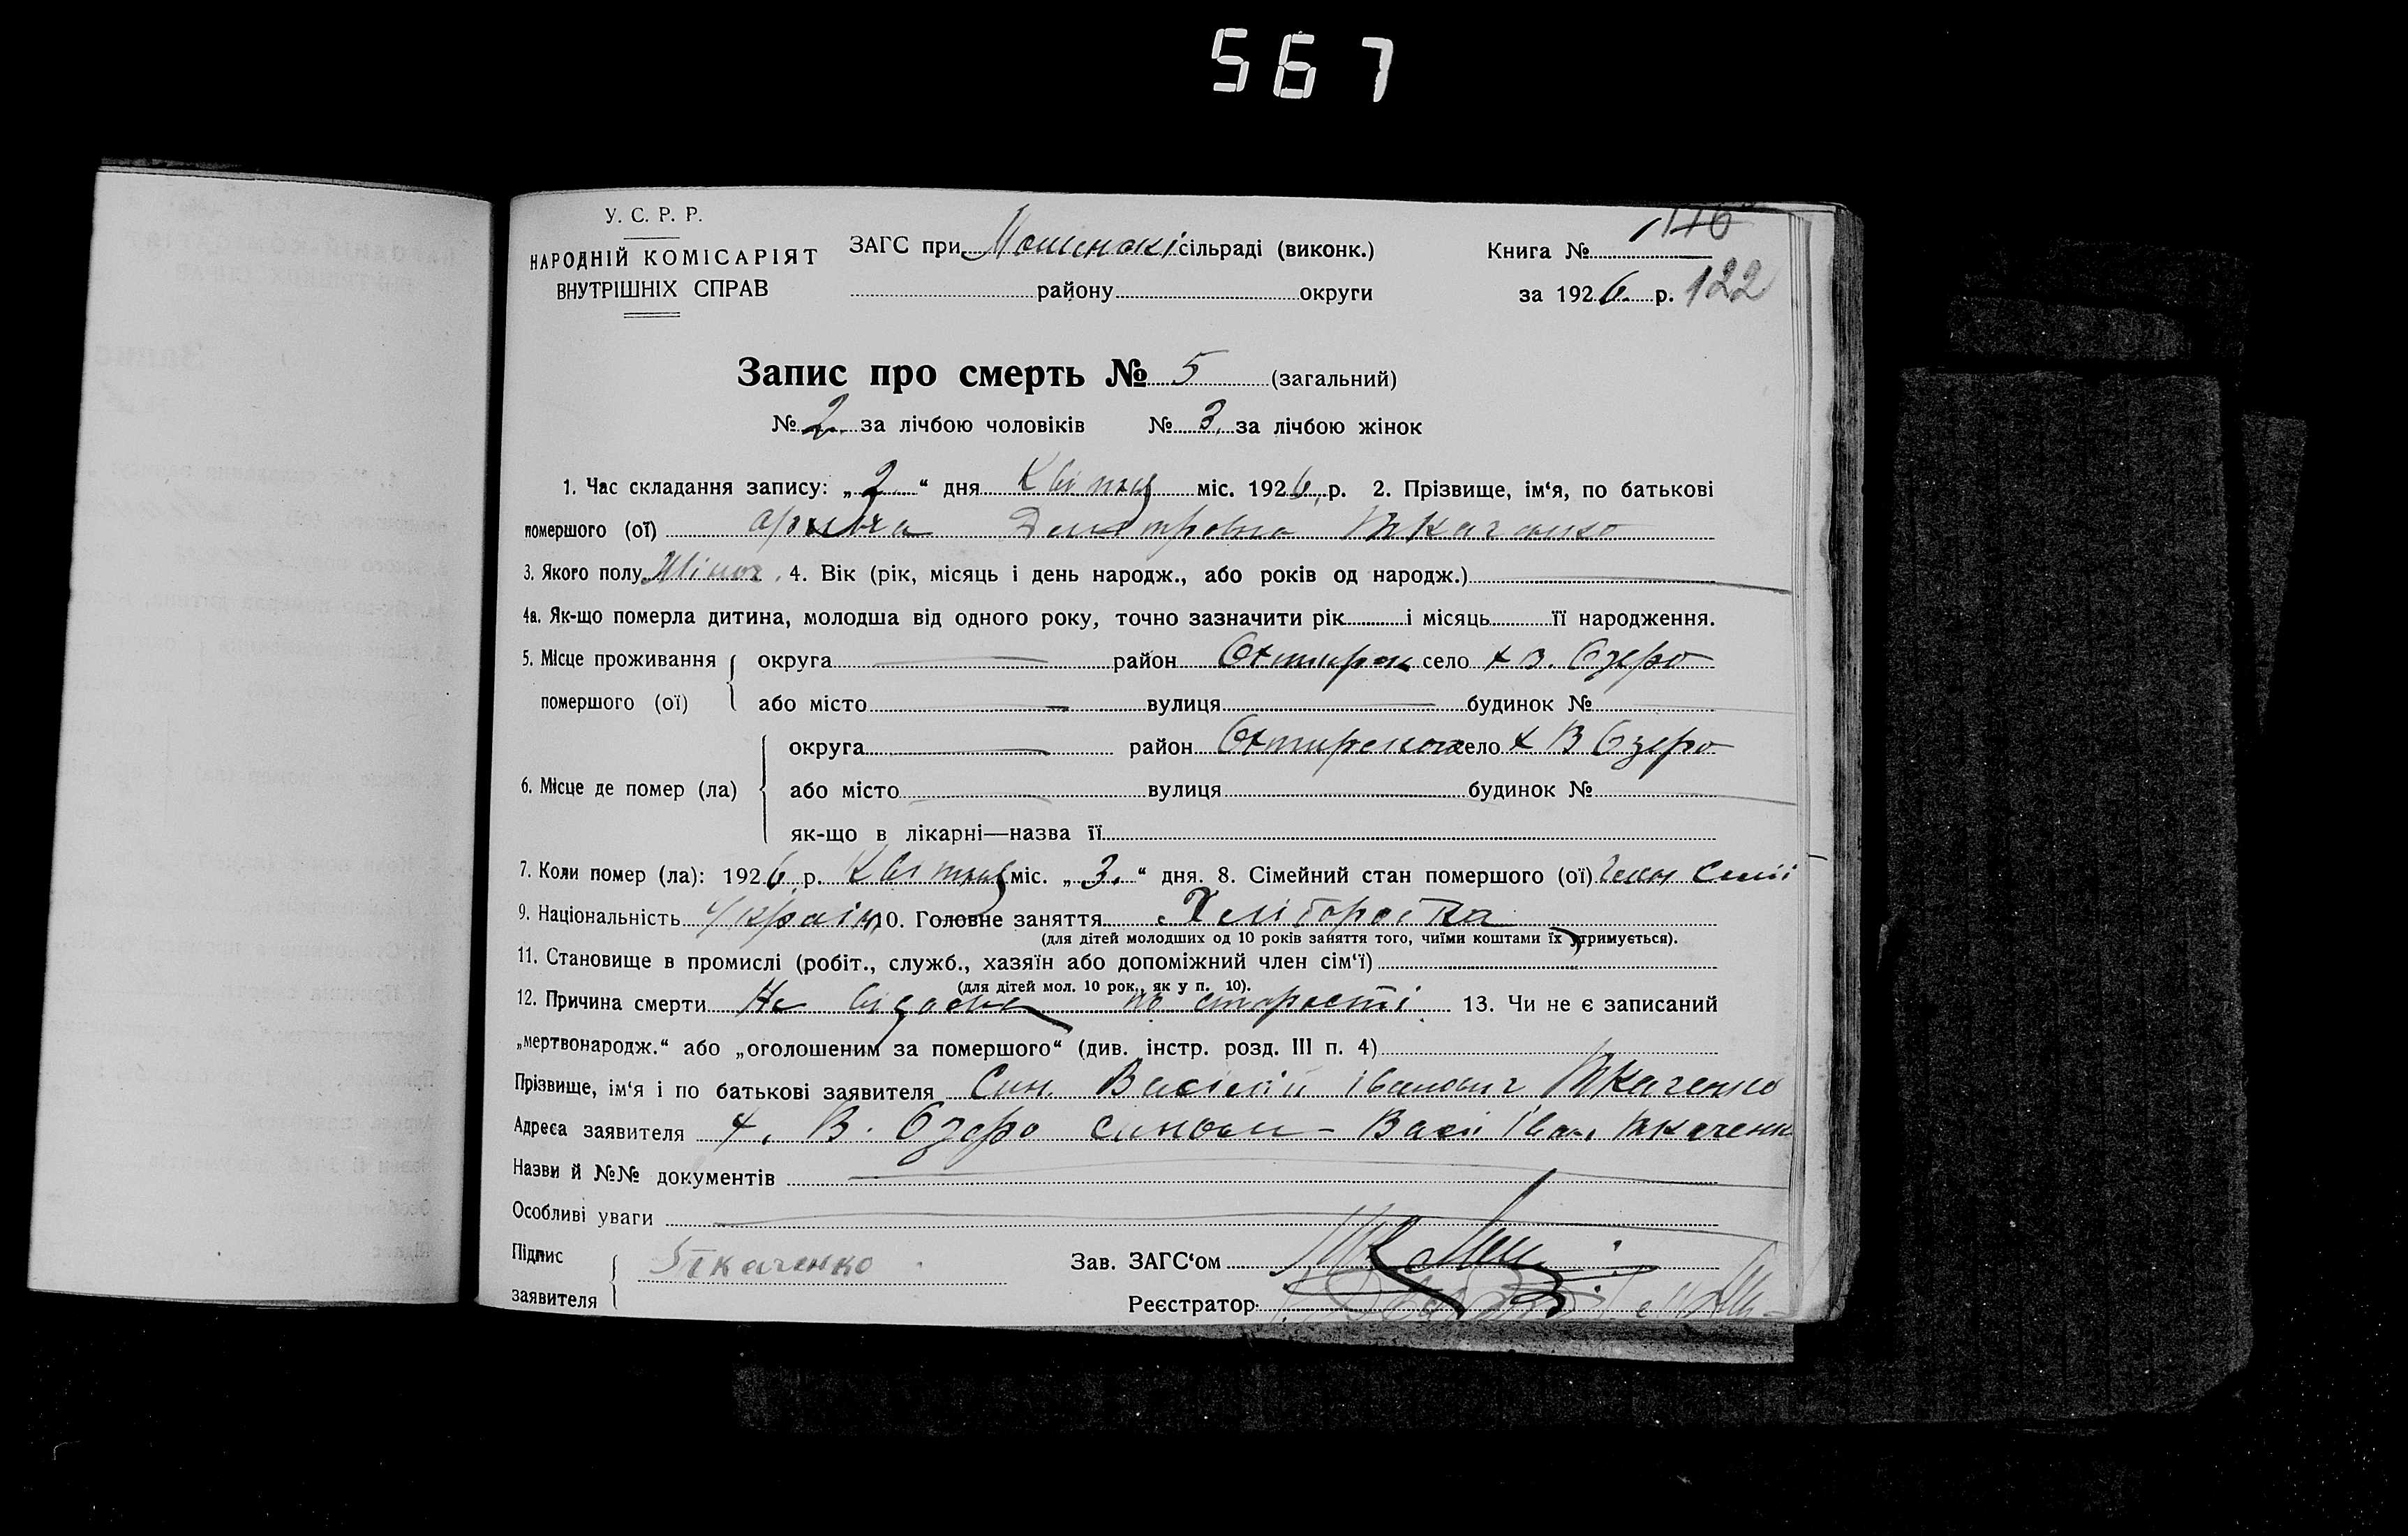 567
У. С. Р. Р.
НАРОДНІЙ КОМІСАРІЯТ
ВНУТРІШНІХ СПРАВ
ЗАГС при сільраді (виконк.)
району округи
Книга № 116
за 1926 р. 122
Запис про смерть № 5 (загальний)
№ 2 за лічбою чоловіків № 3 за лічбою жінок
1. Час складання запису: „2“ дня міс. 1926 р. 2. Прізвище, ім‘я, по батькові
помершого (ої) Ткаченко
3. Якого полу Жіноч. 4. Вік (рік, місяць і день народж., або років од народж.)
4а. Як-що померла дитина, молодша від одного року, точно зазначити рік і місяць її народження.
5. Місце проживання помершого (ої) округа район село х В. Озеро
або місто вулиця будинок №
6. Місце де помер (ла) округа район село х В Озеро
або місто вулиця будинок №
як-що в лікарні—назва її
7. Коли помер (ла): 1926 р. міс. „3.“ дня. 8. Сімейний стан помершого (ої) член семії
9. Національність Україн 10. Головне заняття Хлібороб
(для дітей молодших од 10 років заняття того, чиїми коштами їх утримується).
11. Становище в промислі (робіт., служб., хазяїн або допоміжний член сім‘ї)
(для дітей мол. 10 рок., як у п. 10).
12. Причина смерти Не відома по старості 13. Чи не є записаний
„мертвонародж.“ або „оголошеним за помершого“ (див. інстр. розд. III п. 4)
Прізвище, ім‘я і по батькові заявителя Син. Василій Іванович Ткаченко
Адреса заявителя х. В. Озеро сином - Васи Іван Ткаченк
Назви й №№ документів
Особливі уваги
Підпис заявителя Ткаченко
Зав. ЗАГС‘ом
Реєстратор